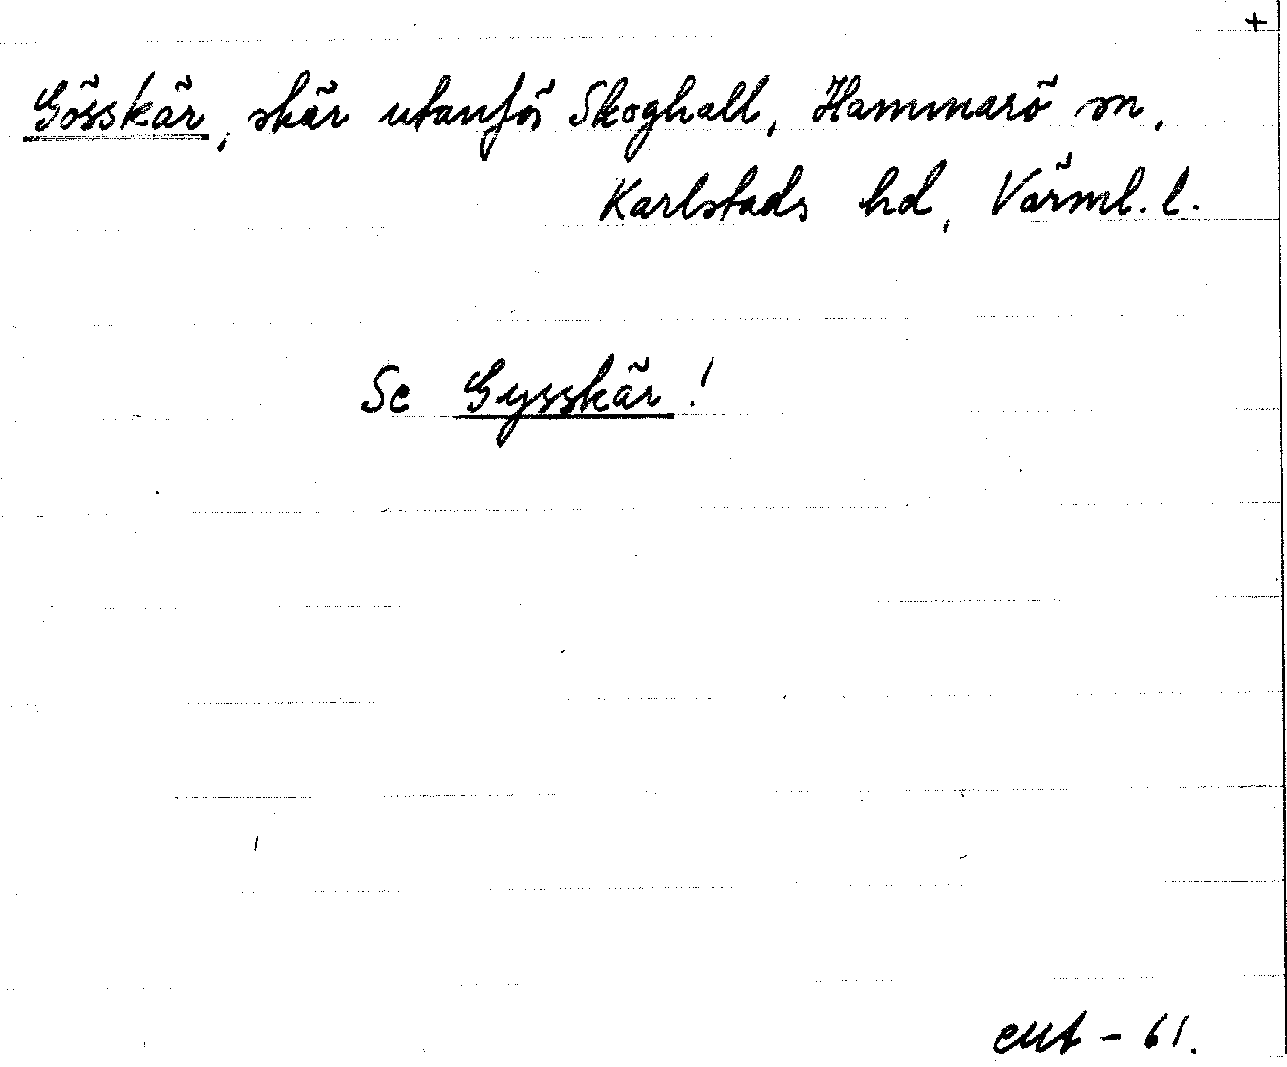 +
Gösskär, skär utanför Skoghall, Hammarö sn,
Karlstads hd, Värml. l.
Se Gysskär!
- 61.